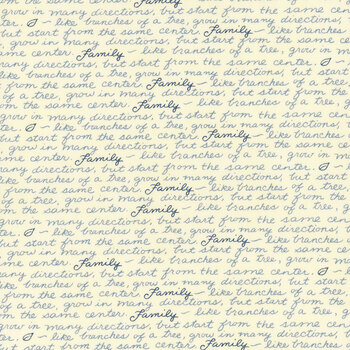 in many directions, but start from the same center.
– like branches of a tree, grow in many directions,
but start from the same center. Family – like branches
of a tree, grow in many directions, but start from the
same center. – like branches of a tree, grow in
many directions, but start from the same center. –
like branches of a tree, grow in many directions, but
start from the same center. Family – like branches
of a tree, grow in many directions, but start
from the same center. Family – like branches of a tree,
grow in many directions, but start from the same
center. – like branches of a tree, grow in many directions,
but start from the same center. Family – like branches
of a tree, grow in many directions, but start from the
same center. Family – like branches of a tree, grow in
many directions, but start from the same center.
like branches of a tree, grow in many directions, but
start from the same center. Family – like branches
of a tree, grow in many directions, but start
from the same center. Family – like branches of a tree,
grow in many directions, but start from the same
center. – like branches of a tree, grow in many directions,
but start from the same center. Family – like branches